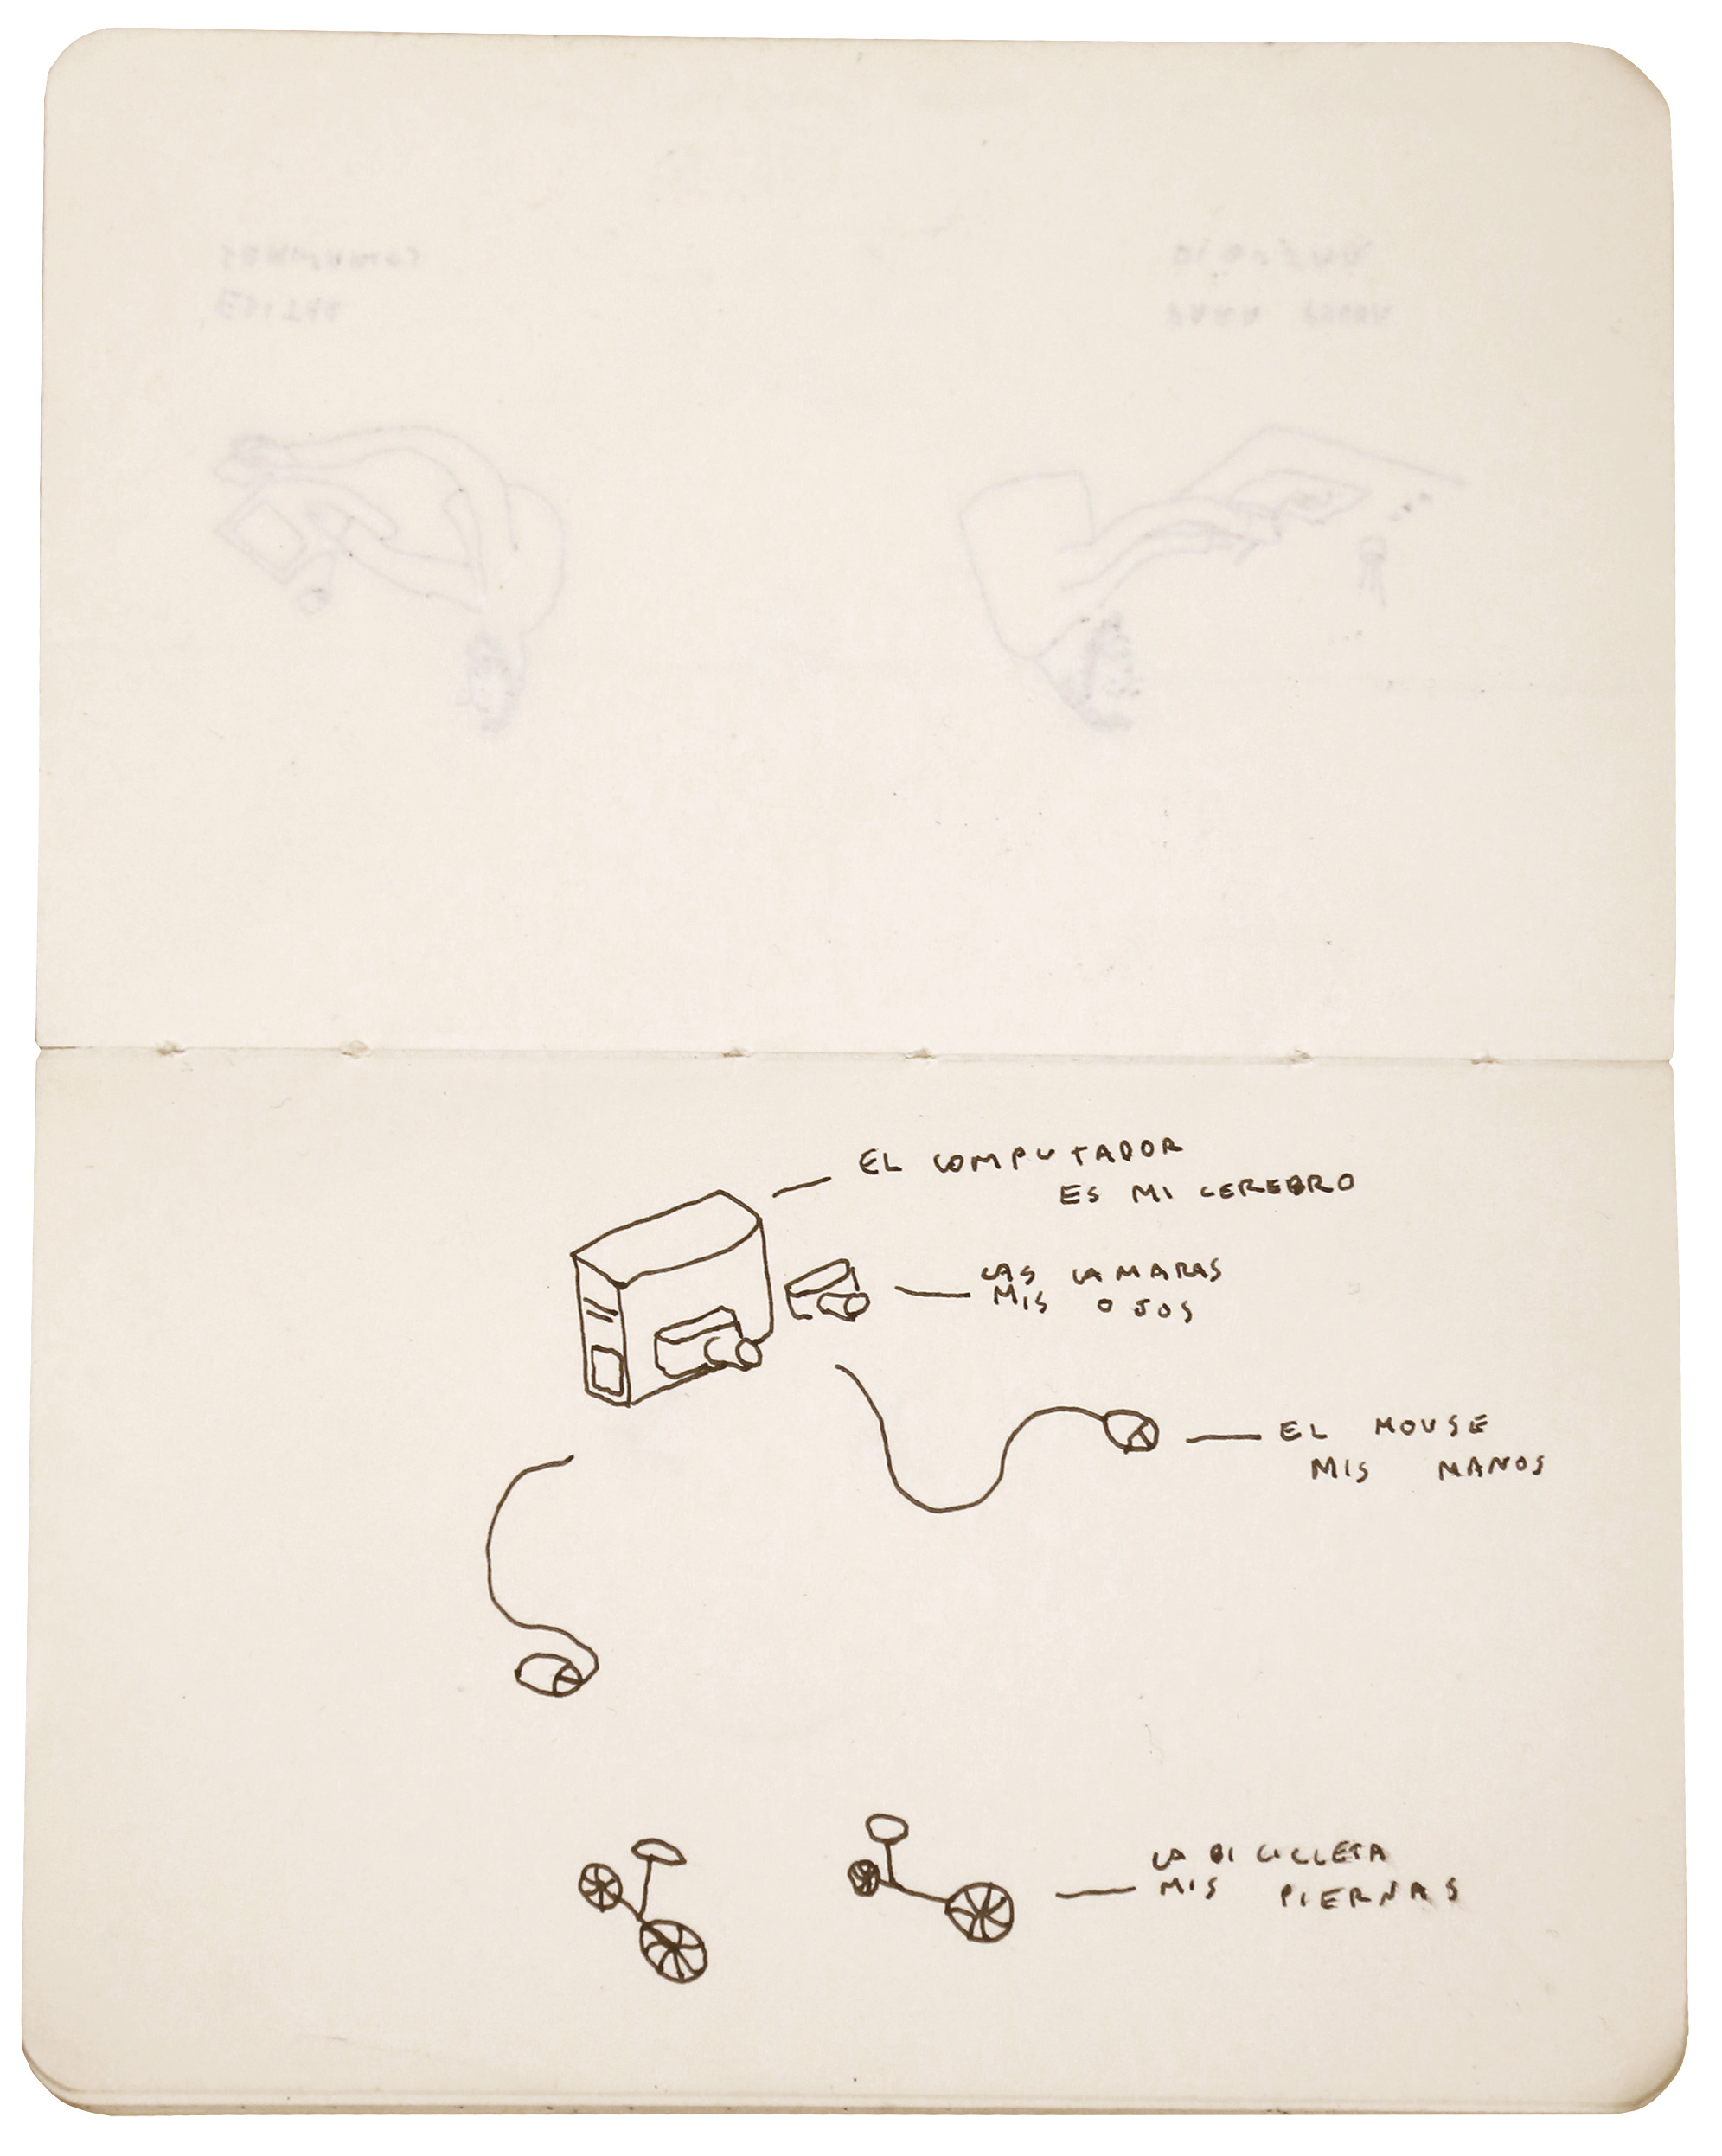 EL COMPUTADOR
ES MI CEREBRO
LAS CAMARAS
MIS OJOS
EL MOUSE
MIS MANOS
LA BICICLETA
MIS PIERNAS